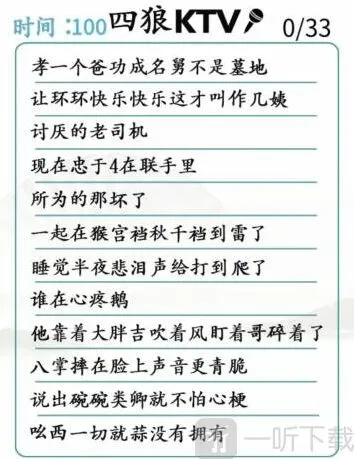 时间：100
四狼KTV
0/33
孝一个爸功成名舅不是墓地
让环环快乐快乐这才叫作几姨
讨厌的老司机
现在忠于4在联手里
所为的那坏了
一起在猴宫裆秋千裆到雷了
睡觉半夜悲泪声给打到爬了
谁在心疼鹅
他靠着大胖吉吹着风盯着哥碎着了
八掌摔在脸上声音更青脆
说出碗碗类卿就不怕心梗
吆西一切就蒜没有拥有
一听下载